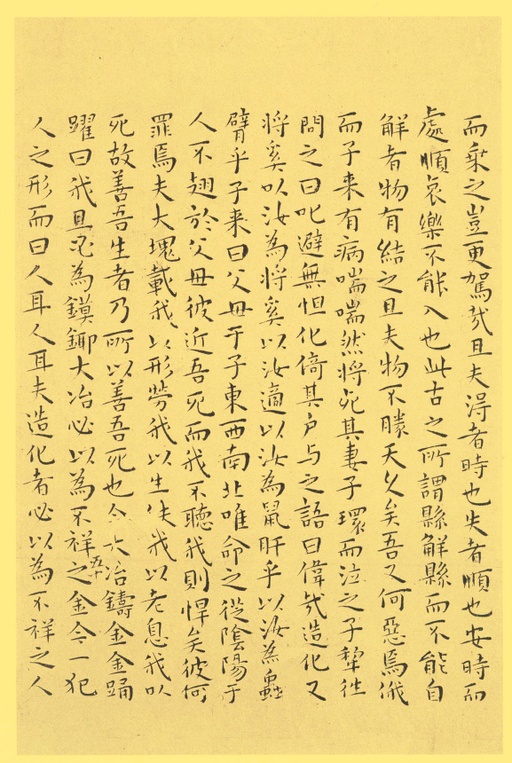 而乘之豈更駕哉且夫淂者時也失者順也安時而
處順哀樂不能入也此古之所謂縣解縣而不能自
解者物有結之且夫物不勝天久矣吾又何惡焉俄
而子来有病喘喘然將死其妻子環而泣之子犂徃
問之曰叱避無怛化倚其户与之語曰偉哉造化又
將奚以汝為將奚以汝適以汝為鼠肝乎以汝為蟲
臂乎子来曰父母于子東西南北唯命之從陰陽于
人不翅於父母彼近吾死而我不聽我則悍矣彼何
罪焉夫大塊載我以形勞我以生佚我以老息我以
死故善吾生者乃所以善吾死也今大冶鑄金金踊
躍曰我且必為鏌鋣大冶必以為不祥之金今一犯
人之形而曰人耳人耳夫造化者必以為不祥之人